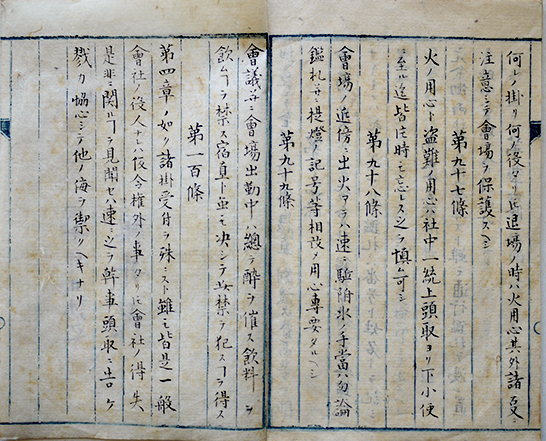 何レノ掛リ何ノ役タリ𪜈退場ノ時ハ火用心其外諸㕝ニ
注意シテ會場ヲ保護スヘシ
第九十七條
火ノ用心ト盗難ノ用心ハ社中一統上頭取ヨリ下小使
ニ至ル迄皆片時モ忘レス之ヲ慎ム可シ
第九十八條
會場ノ近傍ニ出火アラハ速ニ駈附水ノ手當ハ勿論
鑑札并提燈ノ記号等相改メ用心専要タルヘシ
第九十九條
會議并會場出勤中ハ總テ酔ヲ催ス飲料ヲ
飲ムヿヲ禁ス宿直ト雖モ决シテ此禁ヲ犯スヿヲ得ス
第一百條
第四章ノ如ク諸掛受持ヲ殊ニスト雖モ皆是一般
會社ノ役人ナレハ假令権外ノ事タリ𪜈會社ノ得失
是非ニ関ルヿヲ見聞セハ速ニ之ヲ幹事頭取ニ告ケ
戮力協心シテ他ノ侮ヲ禦クヘキナリ